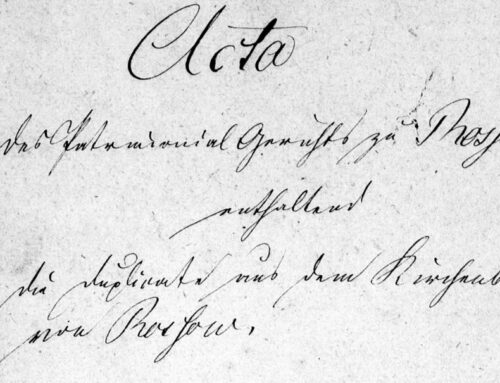 Acta
des Patrimonial Gerichts zu Ross
enthaltend
die Duplicate aus dem Kirchenb
von Rossow.